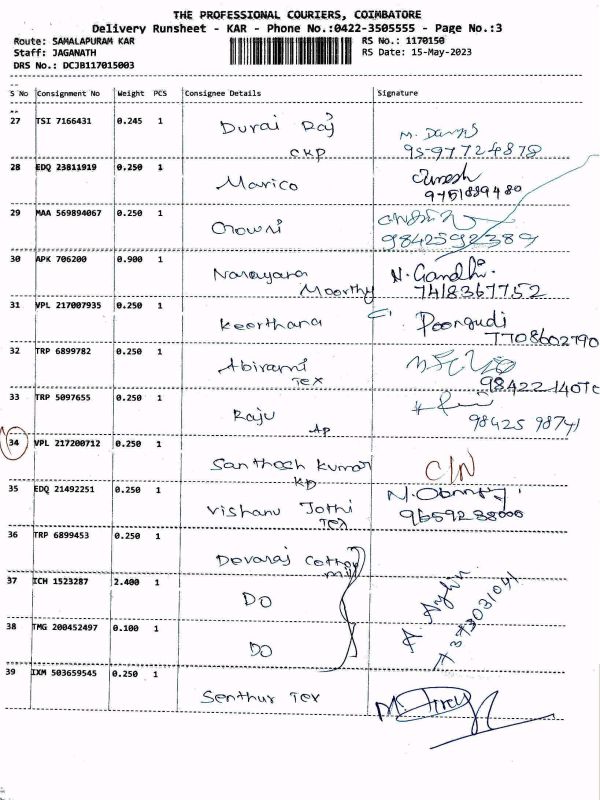 THE PROFESSIONAL COURIERS, COIMBATORE
Delivery Runsheet - KAR - Phone No.:0422-3505555 - Page No.:3
Route: SAMALAPURAM KAR RS No.: 1170150
Staff: JAGANATH RS Date: 15-May-2023
DRS No.: DCJB117015003
S No Consignment No Weight PCS Consignee Details Signature
27 TSI 7166431 0.245 1 Durai Raj
CKP 95-97724878
28 EDQ 23811919 0.250 1 Marico
9751889480
29 MAA 569894067 0.250 1 Chowri
9842592389
30 APK 706200 0.900 1 Narayana Moorthy N. Gandhi.
7418367752
31 VPL 217007935 0.250 1 Keerthana Poongudi
7708602790
32 TRP 6899782 0.250 1 Abirami
Tex 98422
33 TRP 5097655 0.250 1 Raju
AP 98425 98741
34 VPL 217200712 0.250 1 Santhosh Kumar C/N
KP
35 EDQ 21492251 0.250 1 Vishanu Jothi
Tex 9659288000
36 TRP 6899453 0.250 1 Devaraj Cotton
mill
37 ICH 1523287 2.400 1 DO
38 TMG 200452497 0.100 1 DO
39 IXM 503659545 0.250 1 Senthur Tex